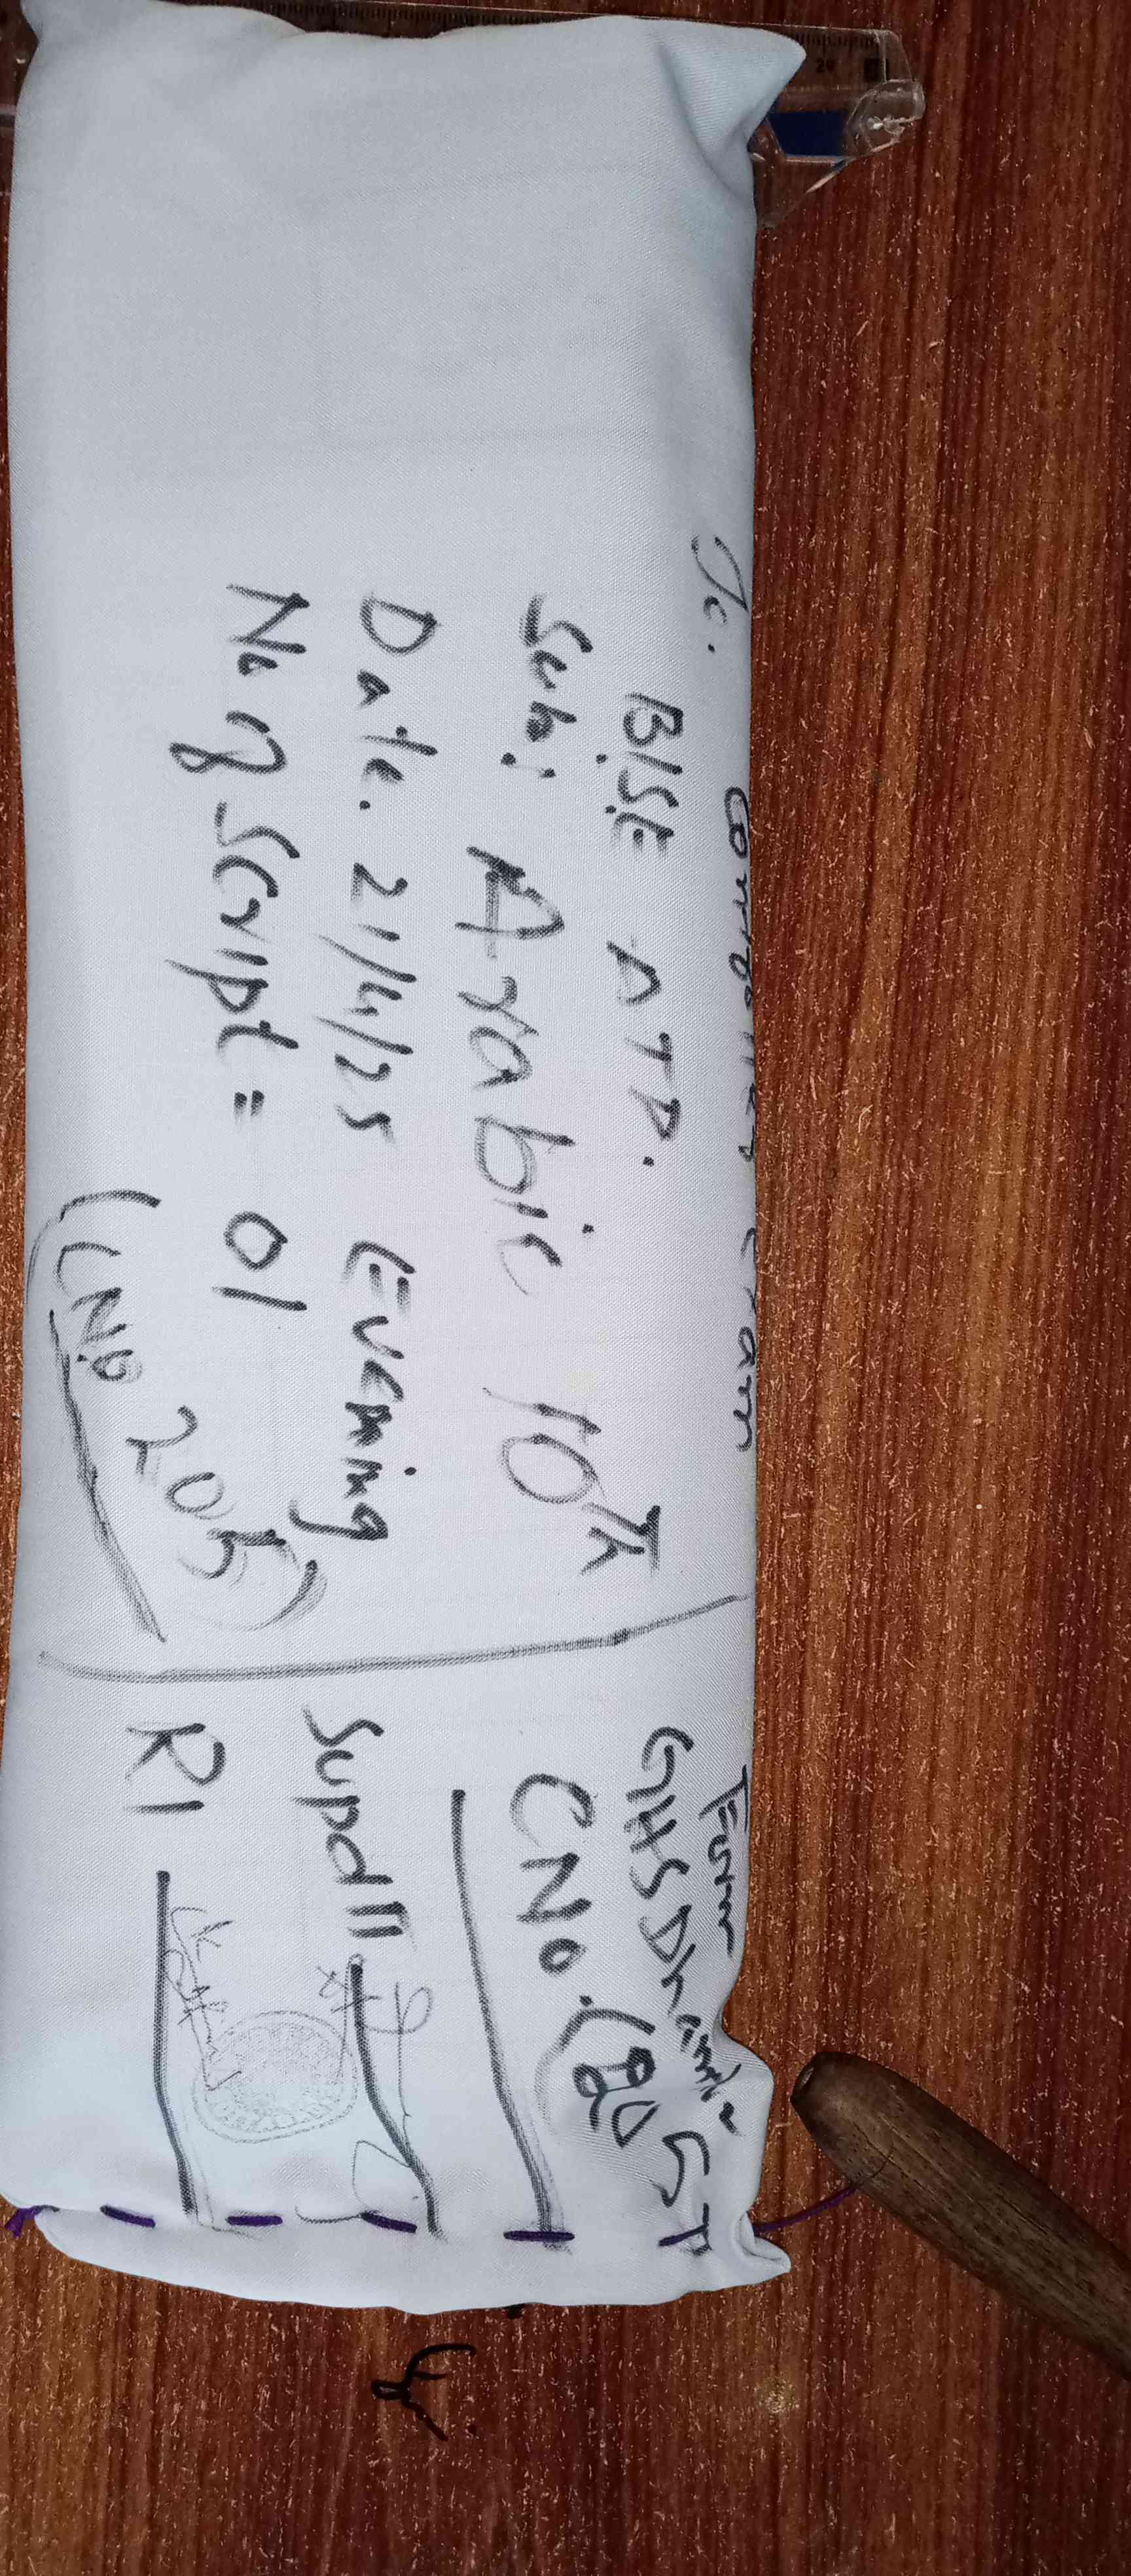 To. Controller Exam
BISE ATD.
Sub: Arabic 10th
Date. 21/4/25 Evening
No of Script = 01
(CNo 205)
From
GHS
CNo. (205
Supdtt
RI